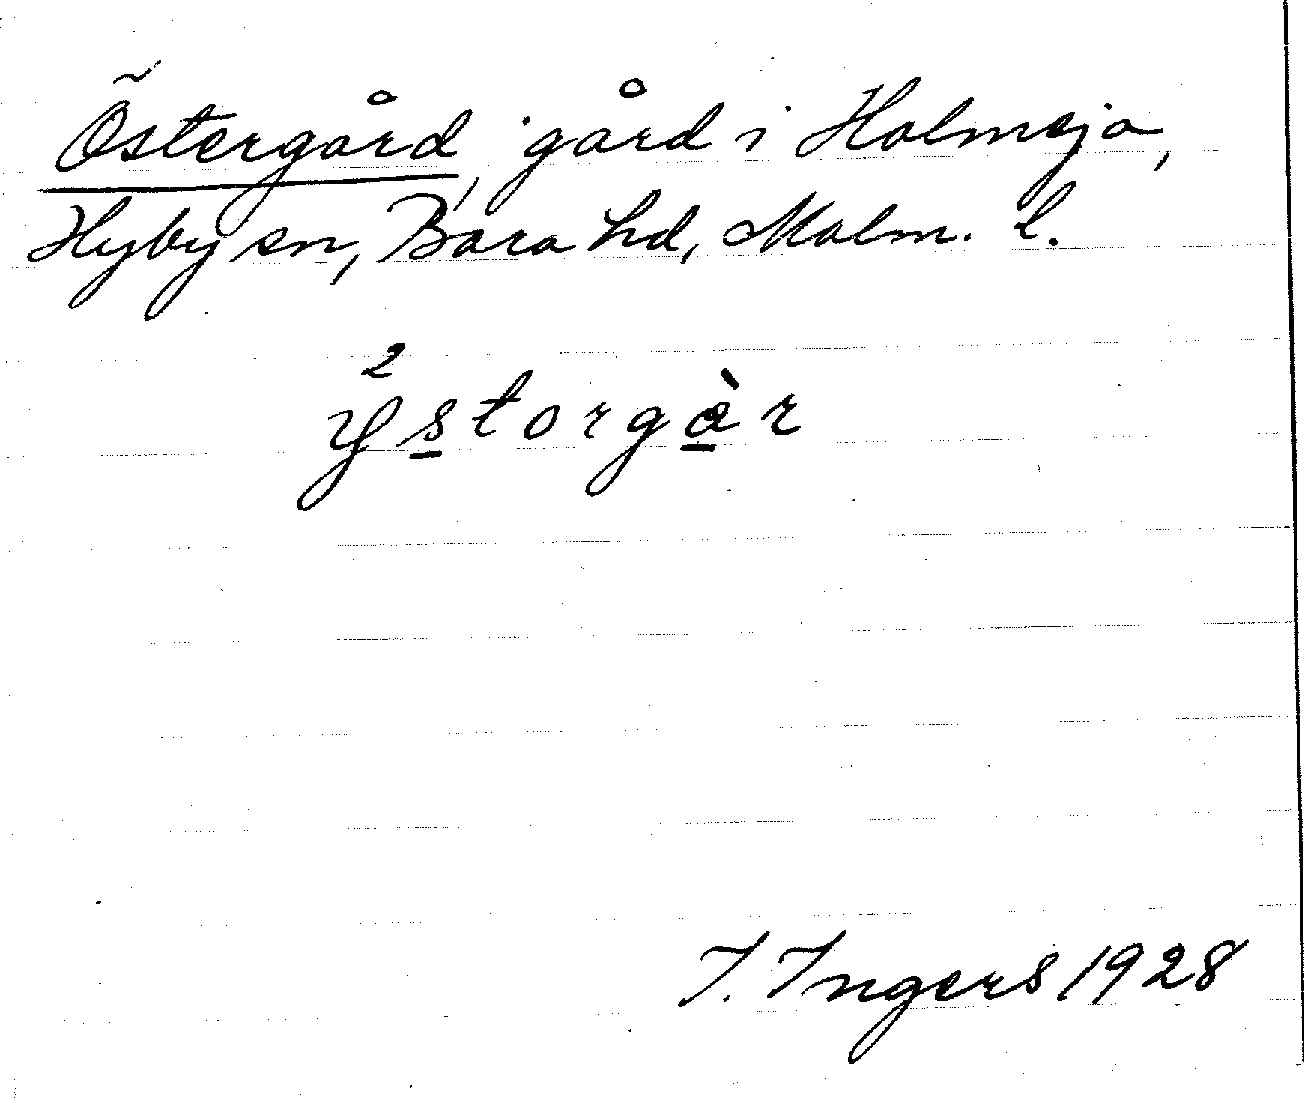 Östergård, gård i Holmeja,
Hyby sn, Bara hd, Malm. l.
²ystorgàr
I. Ingers 1928